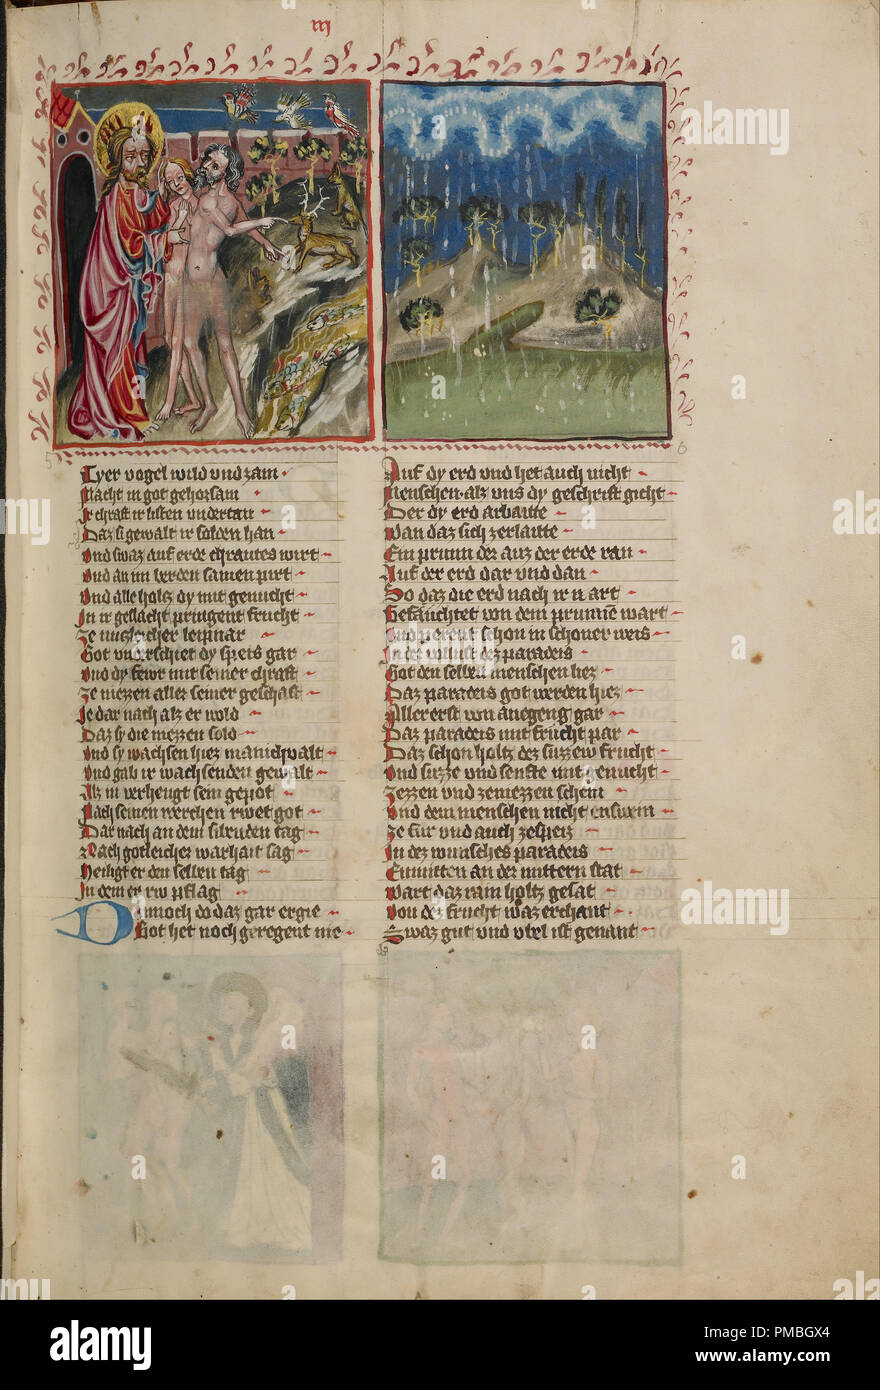 iij
5
6
Tyer vogel wild vnd zam
Macht in got gehorsam
Ir chraft ir listen vndertan
Daz si gewalt ir solden han
Vnd swaz auf erde chrautes wirt
Vnd an im berden samen pirt
Vnd alle holtz dy mit genucht
In ir geslacht pringent frucht
Ze mugleicher leipnar
Got vnderschiet dy speis gar
Vnd dy fewr mit seiner chraft
Ze niezzen aller seiner geschaft
Ie dar nach als er wold
Daz sy die niezzen sold
Vnd sy wachsen hiez manichvalt
Vnd gab ir wachsenden gewalt
Als in verhengt sein gepot
Nach seinen werchen rwet got
Dar nach an dem sibenden tag
Nach gotleicher warhait sag
Heiligt er den selben tag
In dem er rw pflag
Dannoch do daz gar ergie
Got het noch geregent nie
Auf dy erd vnd het auch nicht
Menschen als vns dy geschrift gicht
Der dy erd arbaitte
Wan daz sich zerlaitte
Ein prunn der auz der erde ran
Auf der erd dar vnd dan
So daz die erd nach ir art
Gefeuchtet von dem prunne wart
Vnd perent schon in schoner weis
In der wollust des paradeis
Got den selben menschen liez
Daz paradeis got werden hiez
Aller erst von anegeng gar
Daz paradeis mit frucht par
Daz schon holtz der suzzew frucht
Vnd suzze vnd senfte mit genucht
Zezzen vnd zeniezzen schein
Vnd dem menschen nicht enswein
Ze fur vnd auch ze speis
In des wunsches paradeis
Enmitten an der mittern stat
Wart daz rain holtz gesat
Von des frucht waz erchant
Swaz gut vnd vbel ist genant
alamy
Image ID: PMBGX4
www.alamy.com